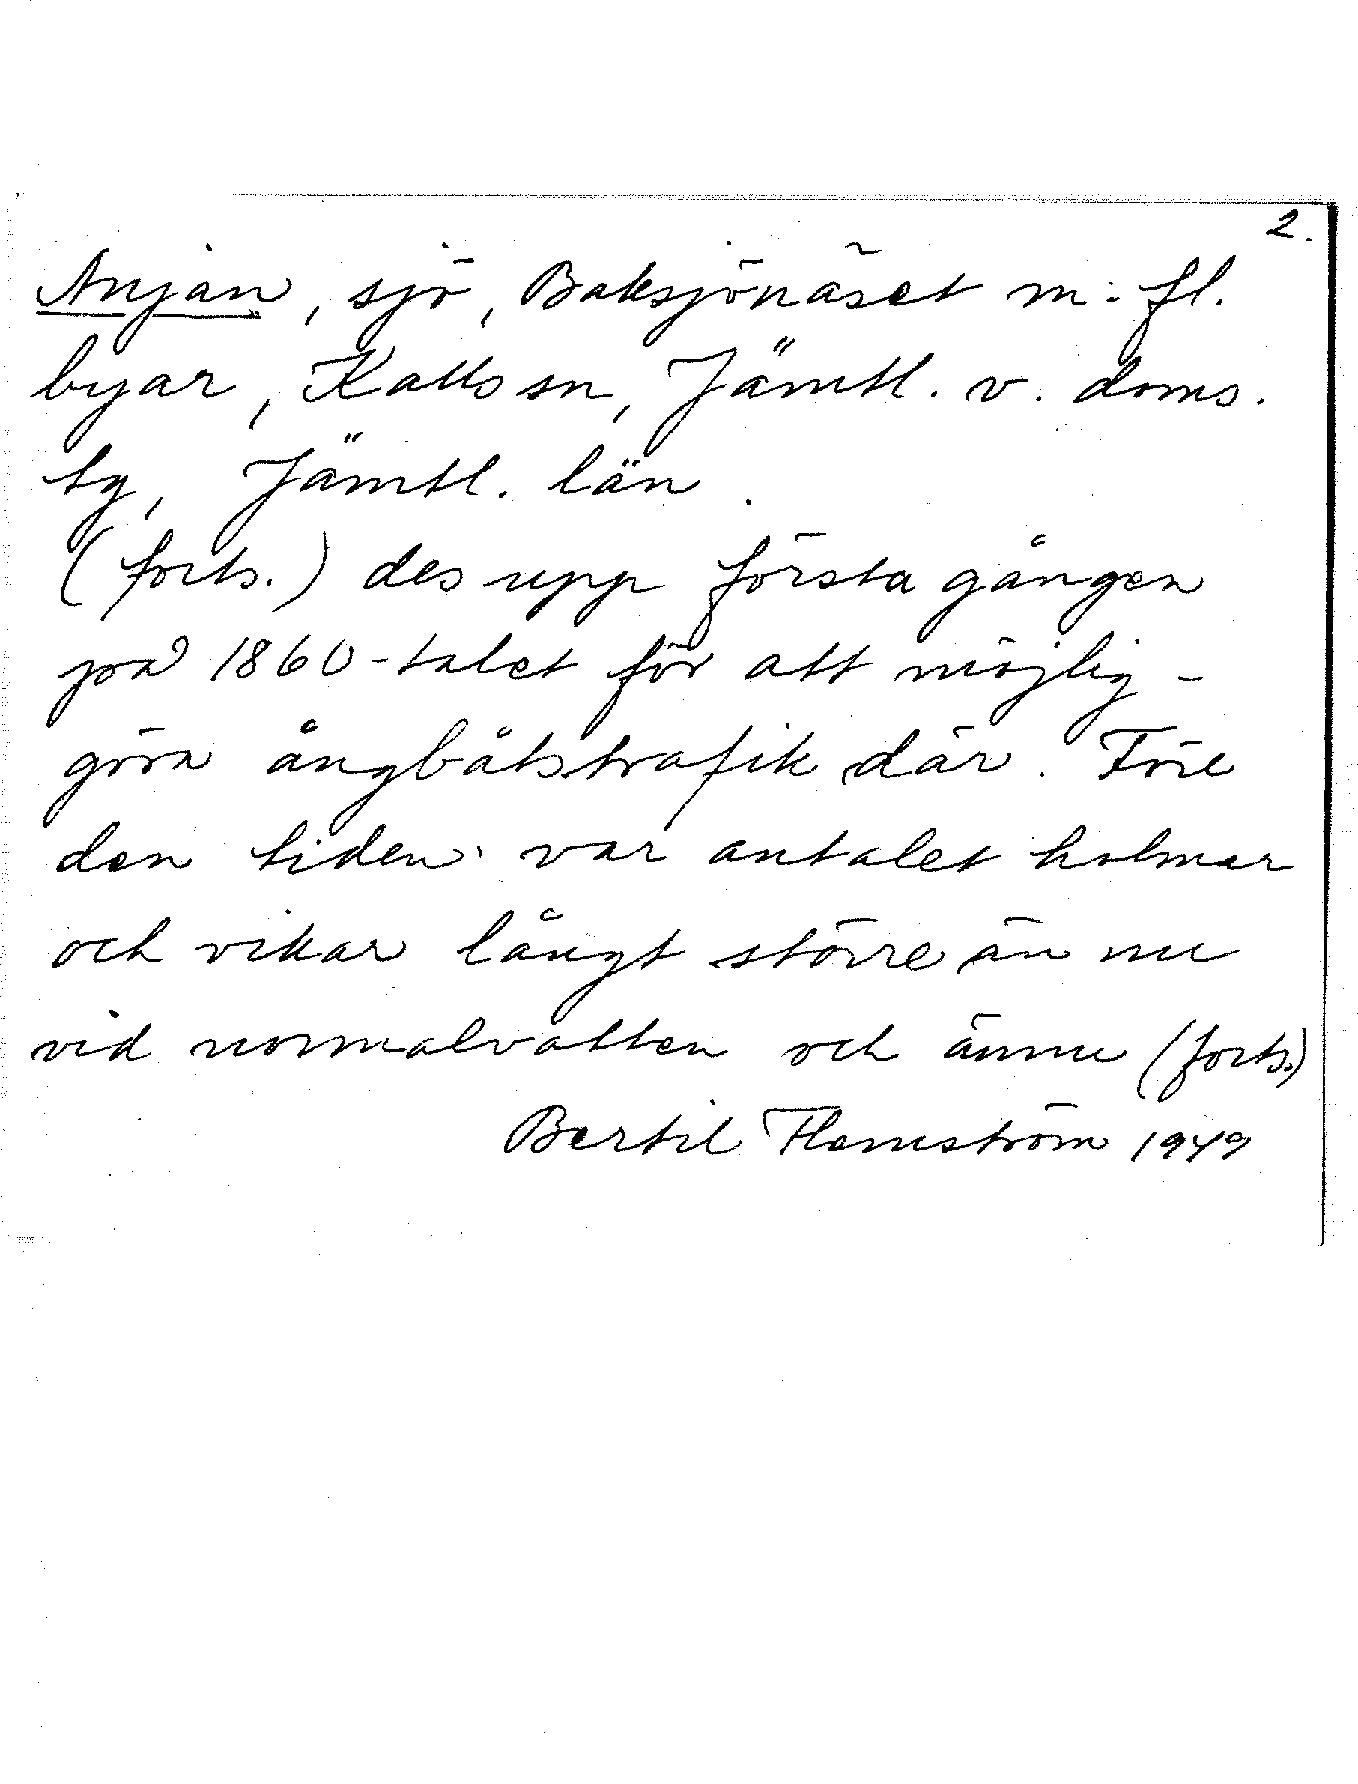 2.
Anjan, sjö, Baksjönäset m. fl.
byar, Kalls sn, Jämtl. v. doms.
tg, Jämtl. län.
(forts.) des upp första gången
på 1860-talet för att möjlig-
göra ångbåtstrafik där. Före
den tiden var antalet holmar
och vikar långt större än nu
vid normalvatten och ännu (forts.)
Bertil Flemström 1949